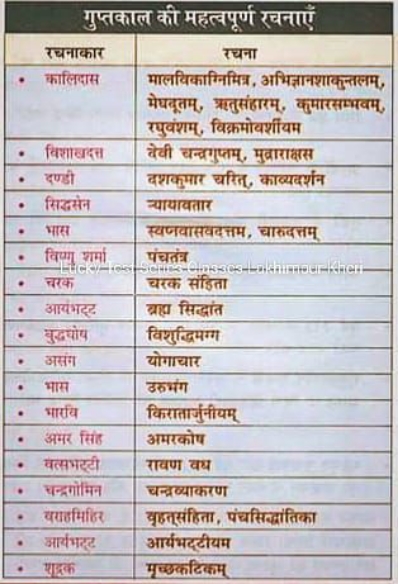 गुप्तकाल की महत्वपूर्ण रचनाएँ
रचनाकार रचना
• कालिदास मालविकाग्निमित्र, अभिज्ञानशाकुन्तलम्,
मेघदूतम्, ऋतुसंहारम्, कुमारसम्भवम्,
रघुवंशम्, विक्रमोवर्शीयम
• विशाखदत्त देवी चन्द्रगुप्तम्, मुद्राराक्षस
• दण्डी दशकुमार चरित्, काव्यदर्शन
• सिद्धसेन न्यायावतार
• भास स्वप्नवासवदत्तम, चारुदत्तम्
• विष्णु शर्मा पंचतंत्र
Lucky Test Series Classes Lakhimpur Kheri
• चरक चरक संहिता
• आर्यभट्ट ब्रह्म सिद्धांत
• बुद्धघोष विशुद्धिमग्ग
• असंग योगाचार
• भास उरुभंग
• भारवि किरातार्जुनीयम्
• अमर सिंह अमरकोष
• वत्सभट्टी रावण वध
• चन्द्रगोमिन चन्द्रव्याकरण
• वराहमिहिर वृहत्संहिता, पंचसिद्धांतिका
• आर्यभट्ट आर्यभट्टीयम
• शूद्रक मृच्छकटिकम्